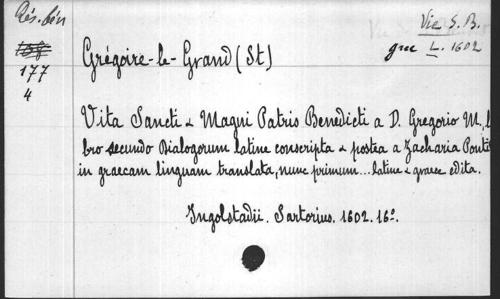 Rés. bén
Vie S. B.
177
4
grec L. 1602
Grégoire-le-Grand (St)
Vita Sancti & Magni Patris Benedicti a D. Gregorio M., l
bro secundo Dialogorum latine conscripta & postea a Zacharia Ponti
in graecam linguam translata, nunc primum... latine & graece edita.
Ingolstadii. Sartorius. 1602. 16º.